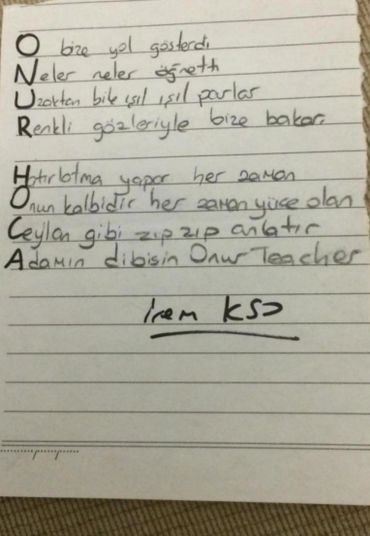 O bize yol gösterdi
Neler neler öğretti
Uzaktan bile ışıl ışıl parlar
Renkli gözleriyle bize bakar.
Hatırlatma yapar her zaman
Onun kalbidir her zaman yüce olan
Ceylan gibi zıp zıp anlatır
Adamın dibisin Onur Teacher
İrem